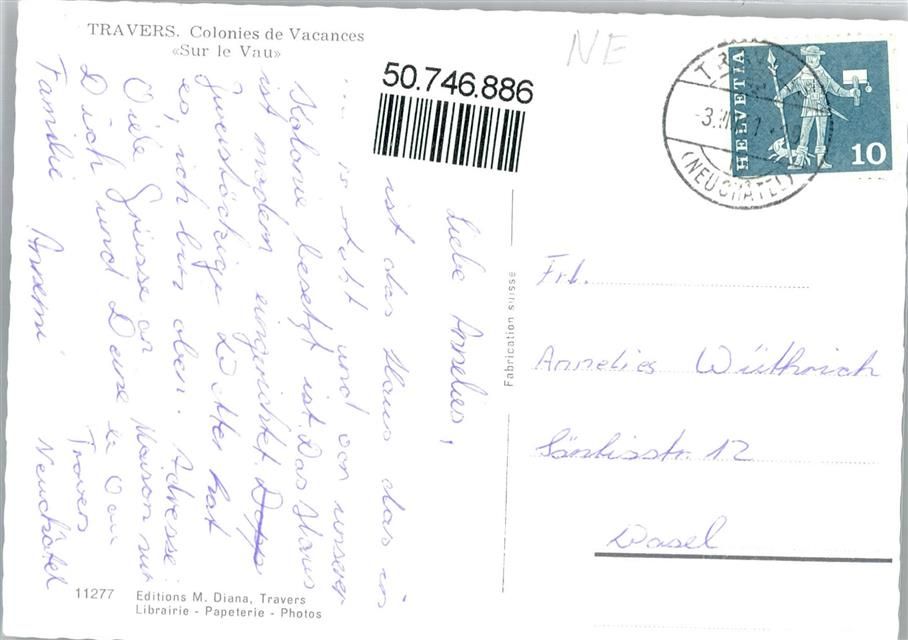 TRAVERS. Colonies de Vacances
«Sur le Vau»
NE
50.746.886
HELVETIA
10
(NEUCHÂTEL)
Liebe Annelies,
ist das Haus das in
rot und von unserer
Kolonie besetzt ist. Das Haus
ist modern eingerichtet.
zweistöckige hat
es, ich bin oben. Adresse:
Viele Grüsse an Maison sur
Dich und Deine le Vau
Familie Travers
Annemi. Neuchâtel
Fabrication suisse
Frl.
Annelies Wüthrich
Säntisstr. 12
Basel
11277
Editions M. Diana, Travers
Librairie - Papeterie - Photos